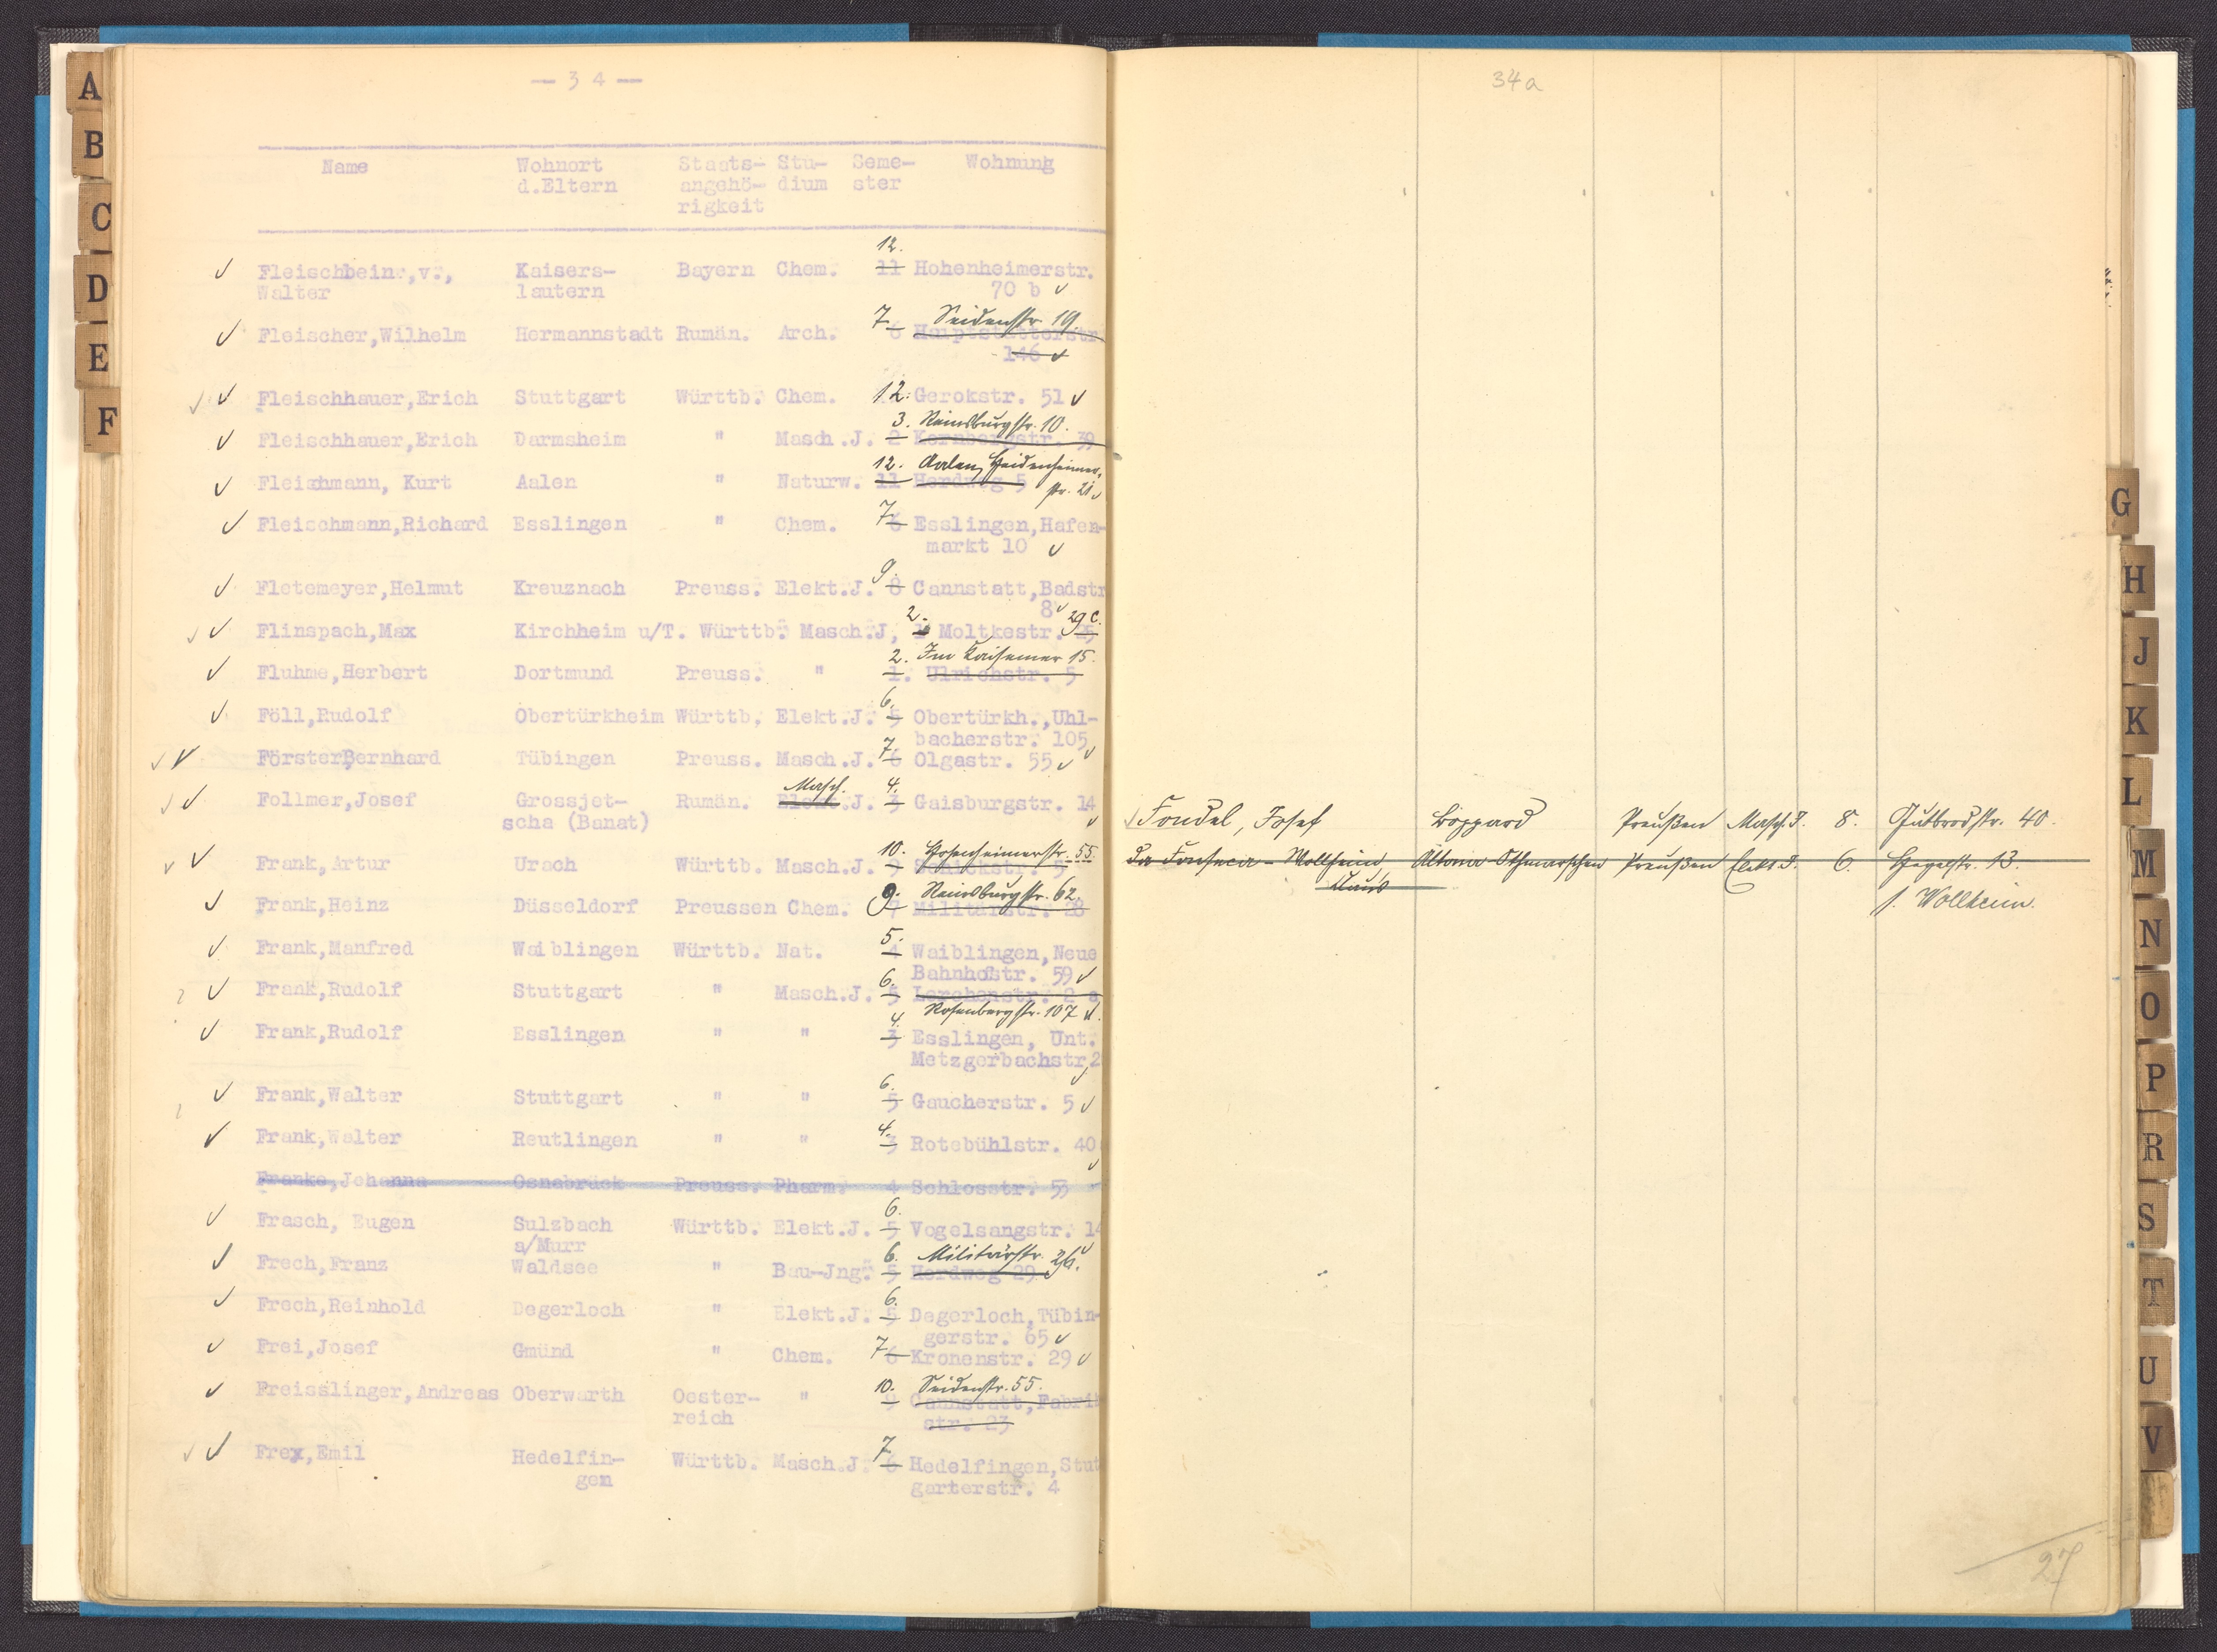 A
B
C
D
E
F
— 34 —
Name Wohnort Staats- Stu- Seme- Wohnung
d.Eltern angehö- dium ster
rigkeit
12.
Fleischbein.,v., Kaisers- Bayern Chem. 11 Hohenheimerstr.
Walter lautern 70 b
7 Seidenstr. 19.
Fleischer,Wilhelm Hermannstadt Rumän. Arch. 6 Hauptstätterstr
146
Fleischhauer,Erich Stuttgart Württb. Chem. 12. Gerokstr. 51
3. Reinsburgstr. 10.
Fleischhauer,Erich Darmsheim " Masch.J. 2 39
12. Aalen, Heidenheimer-
Fleischmann, Kurt Aalen " Naturw. 11 Herdweg 5 str. 21
Fleischmann,Richard Esslingen " Chem. 7 6 Esslingen,Hafen-
markt 10
9.
Fletemeyer,Helmut Kreuznach Preuss. Elekt.J. 8 Cannstatt,Badstr
8
2. 29 c.
Flinspach,Max Kirchheim u/T. Württb. Masch.J, 1 Moltkestr.
2. Im Kaisemer 15.
Fluhme,Herbert Dortmund Preuss. " 1. Ulrichstr. 5
6.
Föll,Rudolf Obertürkheim Württb. Elekt.J. 5 Obertürkh.,Uhl-
bacherstr. 105
7
Förster,Bernhard Tübingen Preuss. Masch.J. 6 Olgastr. 55
Masch. 4.
Follmer,Josef Grossjet- Rumän. Elekt.J. 3 Gaisburgstr. 14
scha (Banat)
10. Hohenheimerstr. 55.
Frank,Artur Urach Württb. Masch.J. 9 Schickstr. 5
9. Reinsburgstr. 62.
Frank,Heinz Düsseldorf Preussen Chem. 7 Militärstr. 28
5.
Frank,Manfred Waiblingen Württb. Nat. 4 Waiblingen,Neue
Bahnhofstr. 59
6.
Frank,Rudolf Stuttgart " Masch.J. 5 Lerchenstr. 2 a
Rosenbergstr. 107
4.
Frank,Rudolf Esslingen " " 3 Esslingen, Unt.
Metzgerbachstr,2
6.
Frank,Walter Stuttgart " " 5 Gaucherstr. 5
4.
Frank,Walter Reutlingen " " 3 Rotebühlstr. 40
Franke,Johanna Osnabrück Preuss. Pharm. 4 Schlosstr. 53
6.
Frasch, Eugen Sulzbach Württb. Elekt.J. 5 Vogelsangstr. 14
a/Murr
6. Militärstr.
Frech,Franz Waldsee " Bau-Jng. 5 Herdweg 29
6.
Frech,Reinhold Degerloch " Elekt.J. 5 Degerloch,Tübin-
gerstr. 65
Frei,Josef Gmünd " Chem. 7 6 Kronenstr. 29
10. Seidenstr. 55.
Freisslinger,Andreas Oberwarth Oester- " 9 Cannstatt,Fabrik
reich str. 23
7
Frex,Emil Hedelfin- Württb. Masch.J. 6 Hedelfingen,Stut
gen garterstr. 4
34a
Fondel, Josef Boppard Preußen Masch. J. 8. Gutbrodstr. 40.
da Fonseca-Wollheim Altona-Othmarschen Preußen Elekt. J. 6. Hegelstr. 13.
Klaus
s. Wollheim.
27
G
H
J
K
L
M
N
O
P
R
S
T
U
V